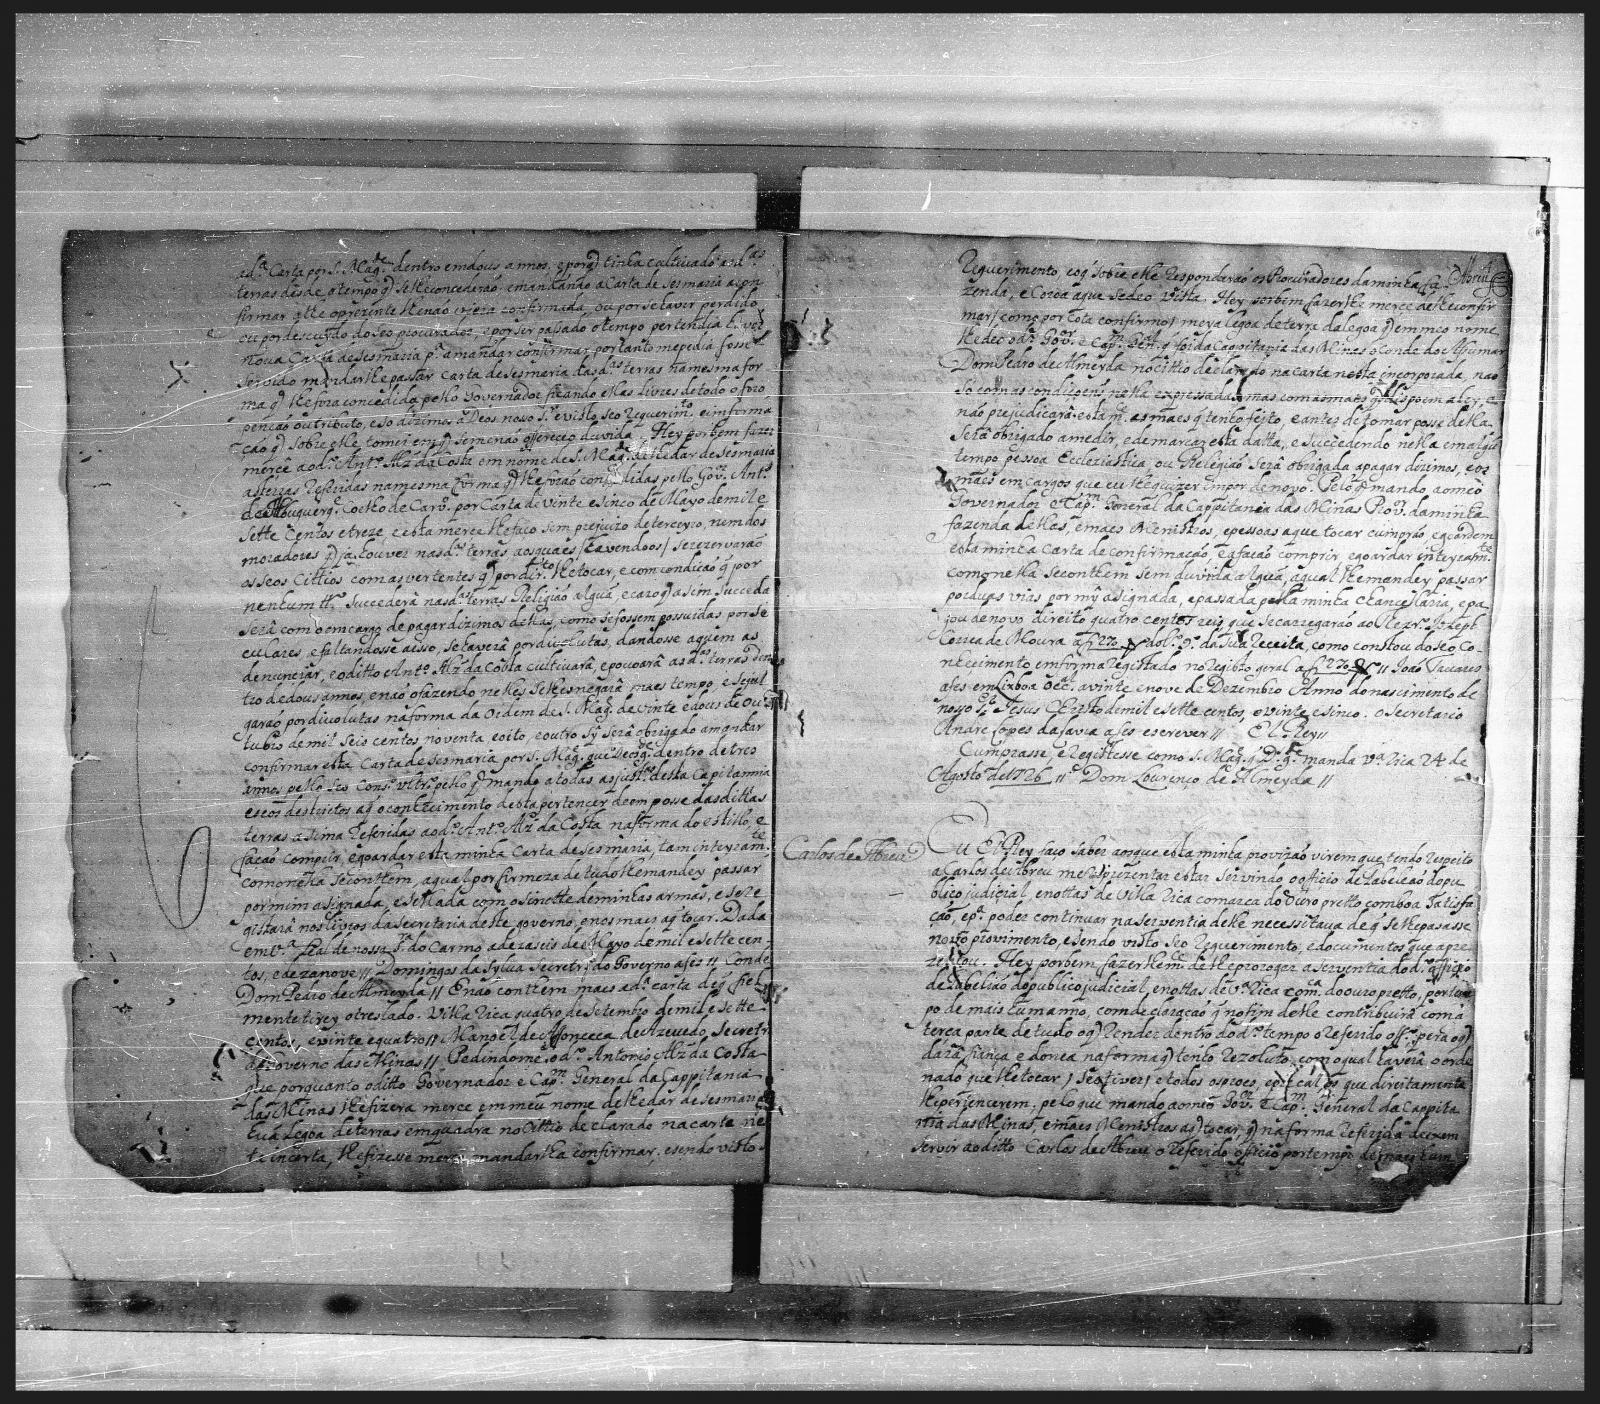 ad.ª Carta por S. Mag.de dentro em dous annos, e porq̃ tinha cultivado as d.as
terras desde o tempo q̃ se lhe concederão emandando a Carta de Sesmaria a con
firmar athe o prezente lhe não viera confirmada, ou por se haver perdido
ou por descuydo do seo procurador, e por ser pasado o tempo pertendia haver
nova Carta de Sesmaria p.ª a mandar confirmar portanto me pedia fosse
servido mandarlhe passar Carta de Sesmaria das d.as terras na mesma for
ma q̃ lhe fora concedida pello Governador ficando ellas livres de todo o foro
penção ou tributo, e so dizimo a Deos noso S.r e visto seo requerim.to e informa
ção q̃ sobre elle tomei em q̃ se me não ofereceo duvida Hey por bem fazer
merce ao d.º Ant.º Alz̃ da Costa em nome de S. Mag.de de lhe dar de Sesmaria
as terras referidas na mesma forma q̃ lhe havião concedidas pello Gov.or Ant.º
de Albuquerq.e Coelho de Carv.º por Carta de vinte e sinco de Mayo de mil e
Sette Centos e treze, e esta merce lhe faço sem prejuizo de terceyro, nem dos
moradores q̃ ja houver nas d.as terras aos quaes (havendoos) se rezervarão
os seos Cittios com as vertentes q̃ por dir.to lhe tocar, e com condição q̃ por
nenhum tt.º Succederâ nas d.as terras Religião algũa, e cazo q̃ asim succeda
serâ com o emcargo de pagar dizimos dellas, como se fossem possuidas por Se
culares, e faltandosse a isso, se haverâ por divolutas, dandosse a quem as
denunciar, e o ditto Ant.º Alz̃ da Costa cultivarâ, e povoarâ as d.as terras den
tro de dous annos, e não o fazendo nelles se lhes negarâ mais tempo, e se jul
garão por divolutas na forma da Ordem de S. Mag.de de vinte e dous de Ou
tubro de mil Seis centos noventa, e oito, e outro sy serâ obrigado a mandar
confirmar esta Carta de Sesmaria por S. Mag.de que Deos g.de dentro de tres
annos pello seo Cons.º Ultr.º pello q̃ mando a todas as just.as desta Capitannia
e seos destrictos a q̃ o conhecimento desta pertencer deem posse das dittas
terras a sima referidas ao d.º Ant.º Alz̃ da Costa na forma do estillo, e
fação comprir, e goardar esta minha Carta de Sesmaria, tam inteyram.te
como nella se conthem, a qual por firmeza de tudo lhe mandey passar
por mim asignada, e sellada com o Sinette de minhas armas, e se re
gistarâ nos livros da Secretaria deste governo, e nos mais a q̃ tocar. Dada
em V.ª Real de nossa Sr.ª do Carmo a dezaseis de Mayo de mil e sette cen
tos, e dezanove // Domingos da Sylva Secretr.º do Governo a fes // Conde
Dom Pedro de Almeyda // E não conttem maes a d.ª carta de q̃ fiel
mente tirey o treslado. Villa Rica quatro de Setembro de mil e sette
centos, e vinte e quatro // Manoel de Affonceca de Azevedo, Secretr.º
do Governo das Minas // Pedindome o d.º Antonio Alz̃ da Costa
que porquanto o ditto Governador e Cap.m General da Cappitania
das Minas lhe fizera merce em meu nome de lhe dar de sesmaria
huã Legoa de terras em quadra no Cittio declarado na carta nes
ta incerta, lhe fizesse merce mandarlha confirmar, e sendo visto
Requerimento, e o q̃ sobre elle responderão os Procuradores da minha fa
zenda, e Coroa a que se deo vista. Hey por bem fazerlhe merce de lhe confir
mar (como por esta confirmo) meya legoa de terra da legoa q̃ em meo nome
lhe deo o d.º Gov.or e Cap.m Gen.l q̃ foi da Cappitania das Minas o Conde do Asumar
Dom Pedro de Almeyda no cittio declarado na carta nesta incorporada, nao
só com as condiçoens nella expressadas mas com as mais q̃ dispoem a Ley, e
não prejudicarâ esta m.ce as mais q̃ tenho feito, e antes de tomar posse della
Serâ obrigado a medir, e demarcar esta datta, e succedendo nella em algũ
tempo pessoa Ecclesiastica, ou Religião serâ obrigada a pagar dizimos, e os
mais emcargos que eu lhe quizer impor de novo. Pelo q̃ mando ao meo
Governador e Cap.m General da Cappitania das Minas Prov.or da minha
fazenda dellas, e maes Menistros, e pessoas a que tocar cumprão, e goardem
esta minha carta de confirmação e a fação comprir, e goardar inteyram.te
como nella se conthem sem duvida algũa, a qual lhe mandey passar
por duas vias por my asignada, e passada pella minha chancelaria, e pa
gou de novo direito quatro centos reis que se carregarão ao Thezr.º Jozeph
Correa de Moura a f 270 do L.º 9.º da Sua receita, como constou do seo Co
nhecimento em forma registado no registo geral a f 270 // João Tavares
a fes em Lixboa Occ.al a vinte e nove de Dezembro Anno do nascimento de
nosso Sr. Jesus Christo de mil e sette centos, e vinte e sinco. O Secretario
Andre Lopes da Lavra a fes escrever // El Rey //
Cumprasse, e registesse como S. Mag.de q̃ D.s g.de manda V.ª Rica 24 de
Agosto de 1726 // Dom Lourenço de Almeyda //
Carlos de Abreu
Eu El Rey faço saber aos que esta minha provizão virem que tendo respeito
a Carlos de Abreu me reprezentar estar servindo o officio de Tabelião do pu
blico judicial, e nottas de Villa Rica comarca do Ouro pretto com boa satisfa
ção, e p.ª poder continuar na serventia delle necessitava de q̃ se lhe pasasse
novo provimento, e sendo visto seo requerimento, e documentos que apre
zentou. Hey por bem fazerlhe m.ce de lhe prorogar a serventia do d.º officio
de Tabelião do publico judicial, e nottas de V.ª Rica com.ca do ouro pretto, por tem
po de mais hum anno, com declaração q̃ no fim delle contribuirâ com a
terça parte de tudo o q̃ render dentro do d.º tempo o referido off.º pera o q̃
darâ fiança e donea na forma q̃ tenho rezoluto, com o qual haverâ o orde
nado que lhe tocar (se o tiver) e todos os proes, e precalços que direitamente
lhe pertencerem: pelo que mando ao meo Gov.or e Cap.m General da Cappita
nia das Minas, e maes Menistros a q̃ tocar q̃ na forma referida deixem
servir ao ditto Carlos de Abreu o referido officio por tempo de mais hum